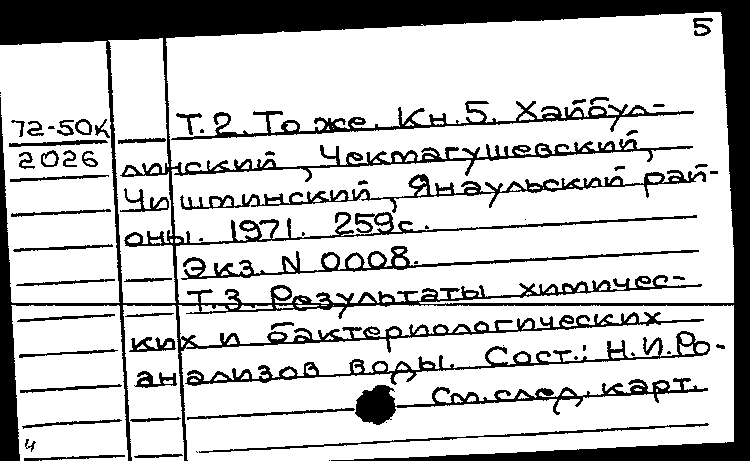 5
72-50К
2026
Т.2. То же. Кн.5. Хайбул-
линский, Чекмагушевский,
Чишминский, Янаульский рай-
оны. 1971. 259с.
Экз. N 0008.
Т.3. Результаты химичес-
ких и бактериологических
анализов воды. Сост.: Н.И.Ро-
См.след. карт.
4